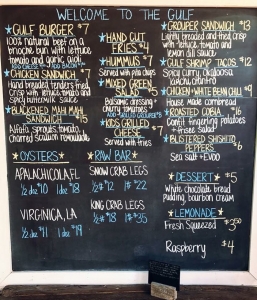 WELCOME TO THE GULF
GULF BURGER $7
100% natural beef on a
brioche bun with lettuce
tomato and garlic aioli
CHICKEN SANDWICH $7
Hand breaded tenders fried
crisp with lettuce tomato and
spicy buttermilk sauce
BLACKENED MAHI MAHI
SANDWICH $15
Alfalfa sprouts, tomato,
charred scallion remoulade
HAND CUT
FRIES $4
HUMMUS $7
Served with pita chips
MIXED GREEN
SALAD
Balsamic dressing
KIDS GRILLED
CHEESE $7
Served with fries
GROUPER SANDWICH $13
Lightly breaded and fried crisp
with lettuce, tomato and
lemon dill sauce
GULF SHRIMP TACOS $12
Spicy curry, okaloosa
CHICKEN WHITE BEAN CHILI $9
House made cornbread
ROASTED COBIA $16
Confit tomatoes, potatoes
BLISTERED SHISHITO
PEPPERS $6
Sea salt + EVOO
OYSTERS
APALACHICOLA, FL
1/2 dz $10 1 dz $18
VIRGINICA, LA
1/2 dz $11 1 dz $19
RAW BAR
SNOW CRAB LEGS
1/2# $12 1# $22
KING CRAB LEGS
1/2# $18 1# $35
DESSERT $5
White chocolate bread
pudding, bourbon cream
LEMONADE
Fresh Squeezed $3.50
Raspberry $4